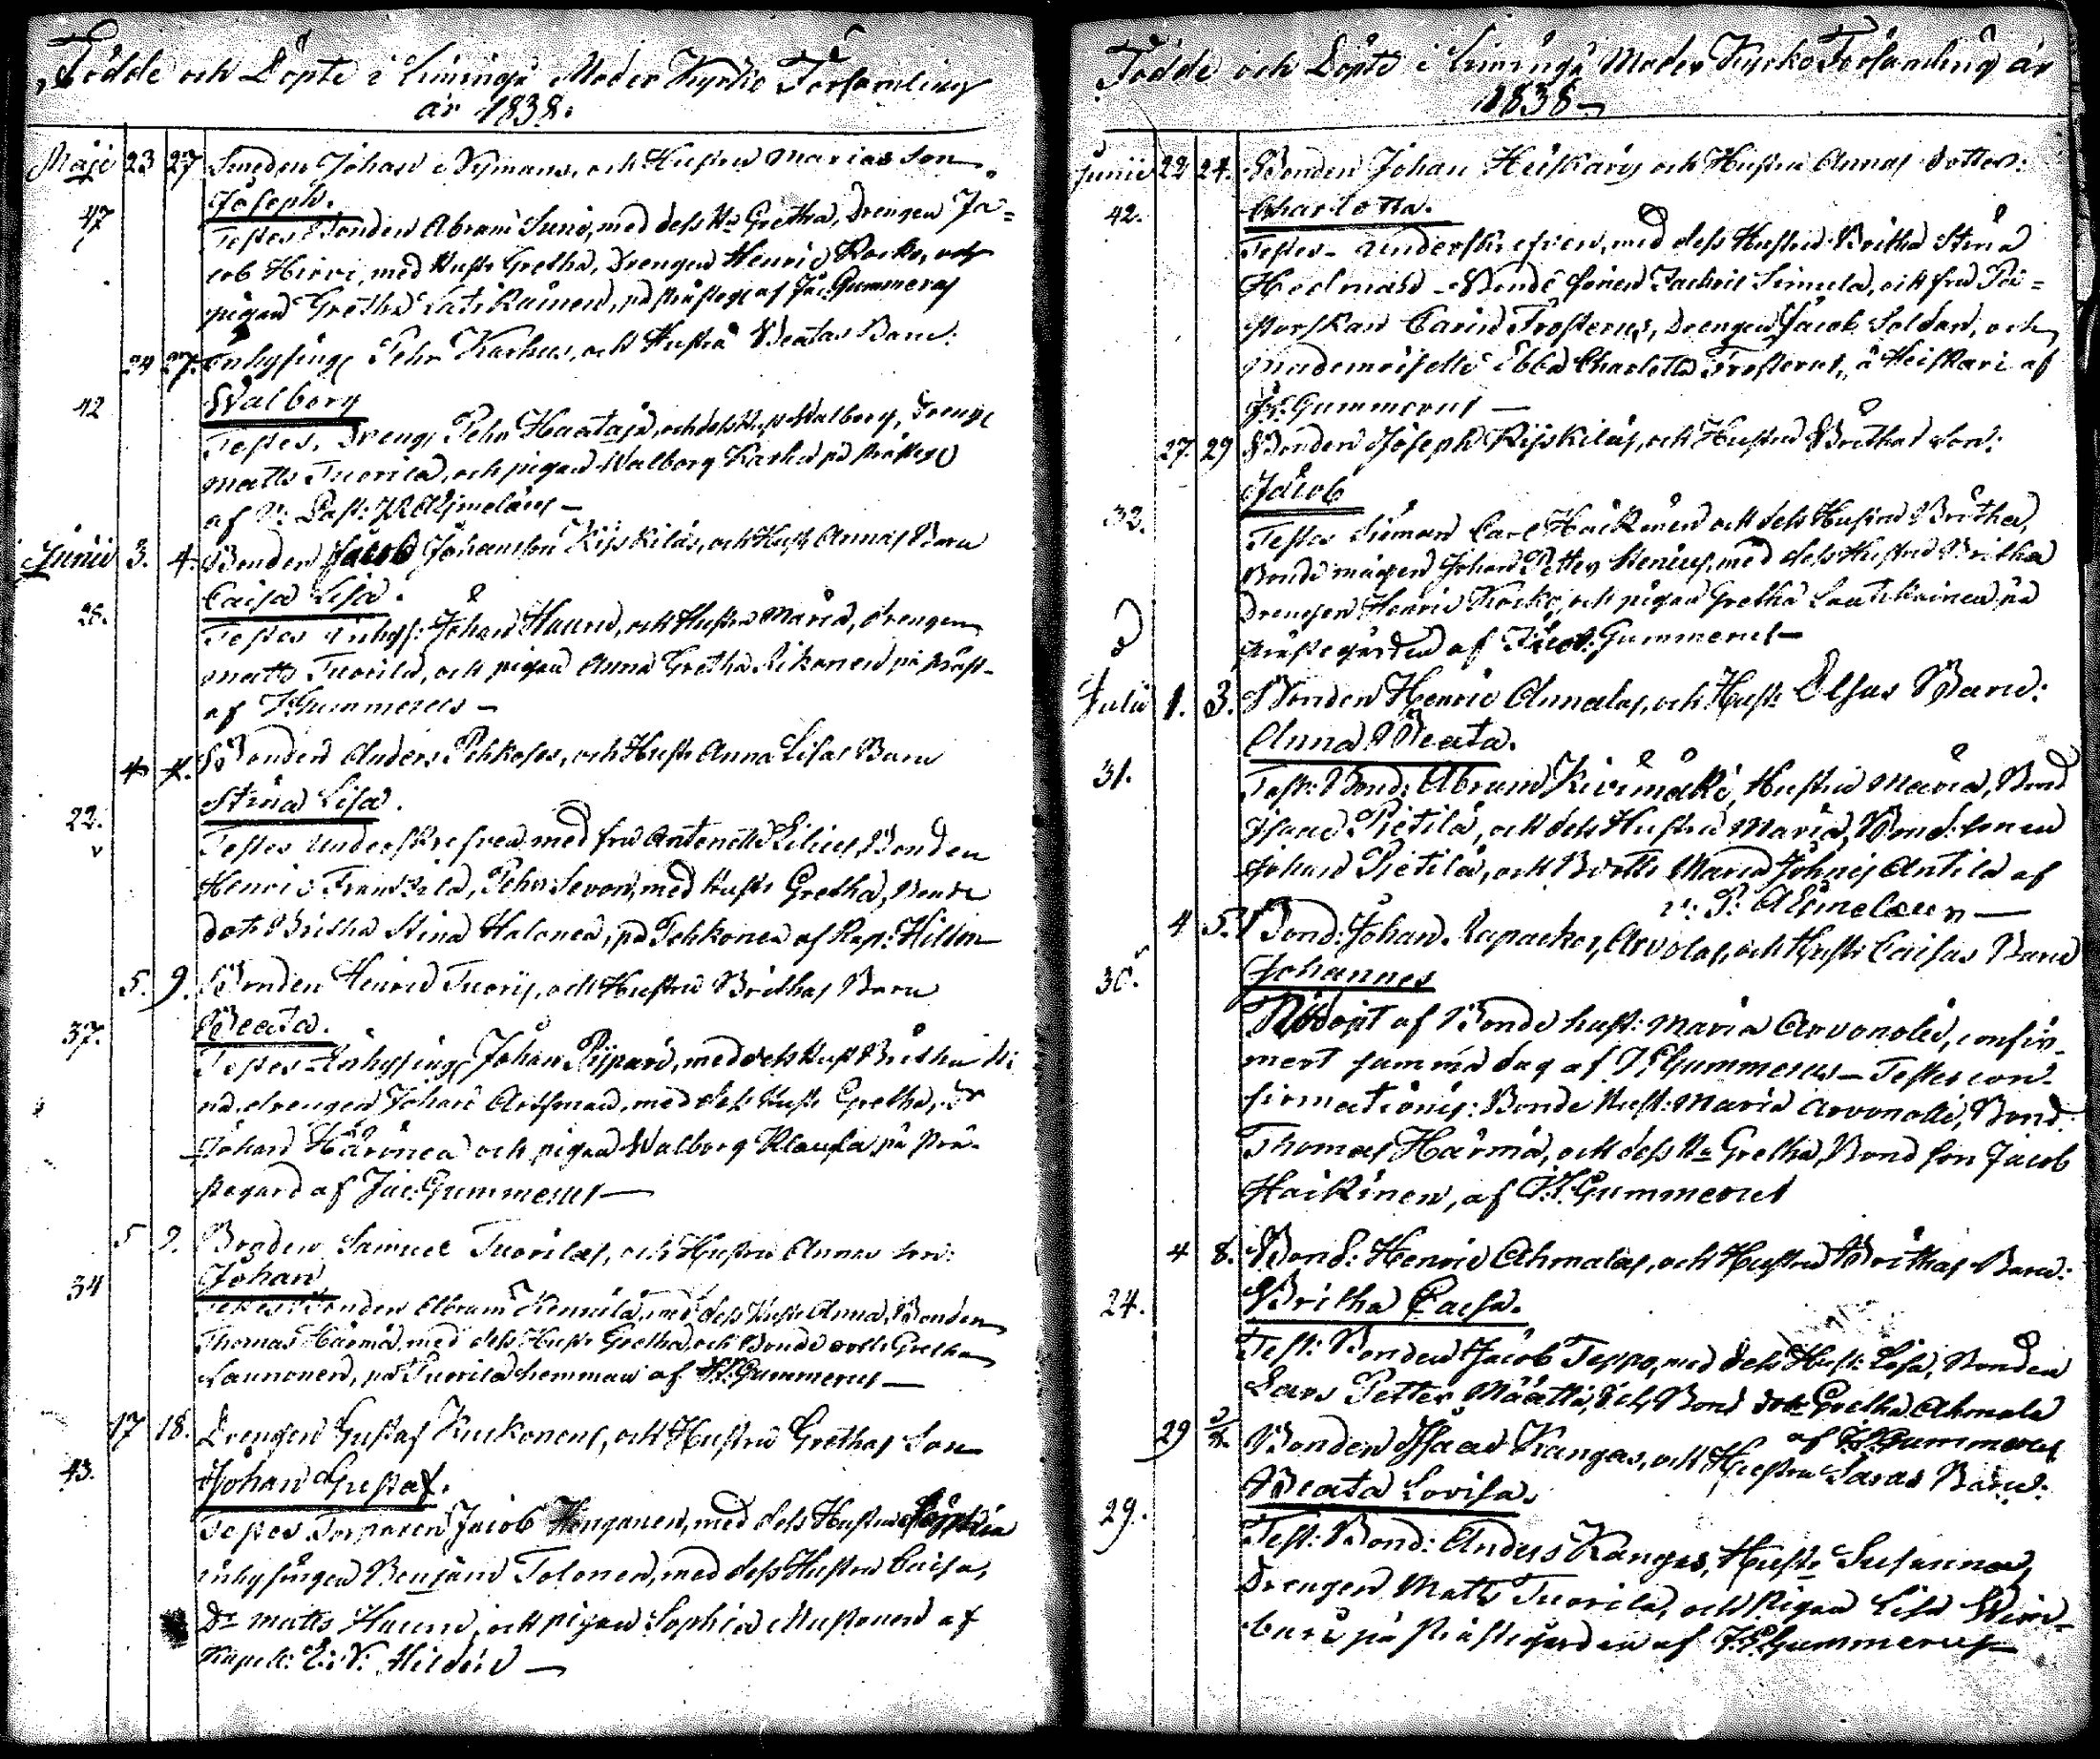 Födde och Döpte i Limingå Moder Kyrko Församling
år 1838.
Maji 23 27 Smeden Johan Nymans, och Hustru Marias Son
Joseph.
47
Testes Bonden Abram Suni, med dess Ha Gretha, Drengen Ja=
cob Hirvi, med Hustr Gretha, Drengen Henric Kocko, och
pigan Gretha Latikainen, på prästeg: af Jac: Gummerus
24 27. Inhysing Pehr Karhus, och Hustru Beatas Barn:
Walborg
42
Testes, Dreng: Pehr Haataja, och dess Hust Walborg, Dreng:
Matts Tuorila, och pigan Walborg Karhu på prästeg:
af V: Past:
Junii 3. 4. Bonden Jacob Johansson Kijskiläs, och Hust Annas Barn
Caisa Lisa.
26.
Testes Inhys: Johan Hauru, och Hustru Maria, drengen
Matts Tuorila, och pigan Anna Gretha Rikonen på präst-
af J: Gummerus –
4. 4. Bonden Anders Pehkoses, och Hustr Anna Lisas Barn
Stina Lisa.
22.
Testes Underskrefven med fru Antonette Lilius, Bonden
Henric Frantzila, Pehr Sevon, med Hustr Gretha, Bonde
dott Britha Stina Halonen, på Pehkonen af Kap: Hildén
5. 9. Bonden Henric Tuoris, och Hustru Brithas Barn
Beata.
37.
Testes Inhysing Johan Pijpari, med dess Hust Britha Sti
na, drengen Johan Artman, med dess Hustr Gretha, Dr
Johan Härönen och pigan Walborg Klaula på Prä-
stegard af Jac: Gummerus —
5 9. Bonden Samuel Tuorilas, och Hustru Annas son:
Johan
34
Testes Bonden Abram Kemilä, med dess Hustr Anna, Bonden
Thomas Härmä, med dess Hustr Gretha, och Bonde dott: Gretha
Launonen, på Tuorila hemman af J: Gummerus —
17 18. Drengen Gustaf Kukonens, och Hustru Grethas Son
Johan Gustaf.
43.
Testes Torparen Jacob Honganen, med dess Hustru Sophia
inhysingen Benjam Tolonen, med dess Hustru Caisa,
Dr Matts Hauru, och pigan Sophia Mustonen af
Kapell: E: N: Hildén —
Födde och Döpte i Limingå Moder Kyrko Församling år
1838
Junii 22 24. Bonden Johan Heiskaris och Hustru Annas dotter:
Charlotta.
42.
Testes Underskrefven, med dess Hustru Britha Stina
Hedman – Bonde sonen Fredric Simula, och fru Pa=
storskan Carin Frosterus, Drengen Jacob Soldan, och
Mademoiselle Ebba Charlotta Frosterus, å Heiskari af
J: Gummerus —
27. 29 Bonden Joseph Kijskiläs, och Hustru Brithas son:
Jacob
32.
Testes Siöman Carl Häikinen och dess Hustru Britha,
Bonde mågen Johan Petter Stenius, med dess Hustru Britha
Drengen Henric Kocko, och pigan Gretha Lautikainen på
prästegården af Jacob: Gummerus —
Julii 1. 3. Bonden Henric Annalas, och Hust: Elsas Barn:
Anna Beata.
31.
Test: Bond: Abram Kivimäki, Hustru Maria, Bond
Isaac Pietilä, och dess Hustru Maria, Bond: sonen
Johan Pietilä, och B dotts Maria Johns Antila af
v: P:
4 5. Bond: Johan Lapackos, Arvolas, och Hust: Caisas Barn
Johannes
30.
Nöddöpt af Bonde hust: Maria Arvonolli, confir-
mert samma dag af J: Gummerus – Testes con-
firmationis: Bonde Hust: Maria Arvonolli, Bond
Thomas Härmä, och dess Ha Gretha, Bond son Jacob
Haikinen, af J: Gummerus
4 8. Bond: Henric Ahmalas, och Hustru Brithas Barn:
Britha Caisa.
24.
Test: Bonden Jacob Teppo, med dess Hust: Lisa, Bonden
Lars Petter Määttä, och Bond dott: Gretha Ahmala
af J: Gummerus
29 Bonden Isaac Kangas, och Hustru Saras Barn:
Beata Lovisa.
29.
Test: Bond: Anders Kangas, Hustr Susanna,
Drengen Matts Tuorila, och Pigan Lisa
på Prästegården af J: Gummerus